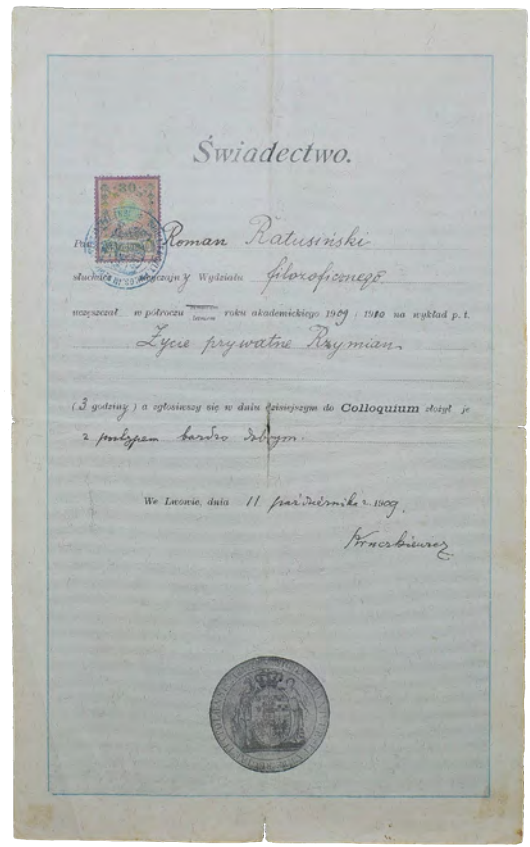 Świadectwo.
30
Pan Roman Ratusiński
słuchacz zwyczajny Wydziału filozoficznego
uczęszczał w półroczu roku akademickiego 1909/1910 na wykład p. t.
Życie prywatne Rzymian
(3 godziny) a zgłosiwszy się w dniu dzisiejszym do Colloquium złożył je
z postępem bardzo dobrym.
We Lwowie, dnia 11 października 1909.
Kruczkiewicz